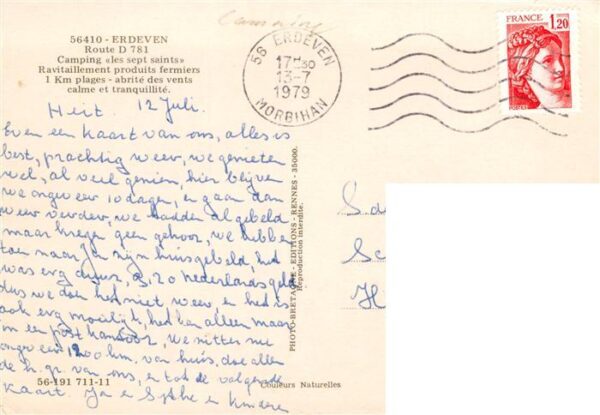 56410 - ERDEVEN
Route D 781
Camping «les sept saints»
Ravitaillement produits fermiers
1 Km plages - abrité des vents
calme et tranquillité.
56 ERDEVEN
17H30
13-7
1979
MORBIHAN
FRANCE 1,20
Heit. 12 Juli.
Even een kaart van ons, alles is
best, prachtig weer, we genieten
wel, al veel gezien, hier blijven
we ongeveer 10 dagen, en gaan dan
weer verder, we hadden al gebeld
maar kregen geen gehoor, we hebbe
toen naar Jan zijn huis gebeld, het
was erg duur, 9,20 nederlands geld
dus we doen het niet weer en het is
ook erg moeilijk, het kan alleen maar
in een postkantoor, we zitten nu
ongeveer 1200 km. van huis, doe allen
de h. gr. van ons, en tot de volgende
kaart. Jan e Sjtke en kindere
PHOTO-BRETAGNE - EDITIONS - RENNES - 35000.
Reproduction interdite.
S. d
Sc
H
56-191 711-11
Couleurs Naturelles